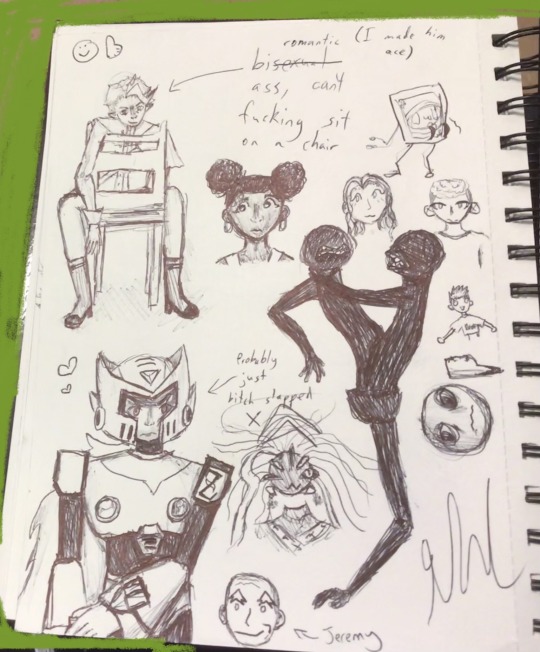 romantic (I made him
ace)
bisexual
ass, can't
fucking sit
on a chair
Probably
just
bitch slapped
Jeremy